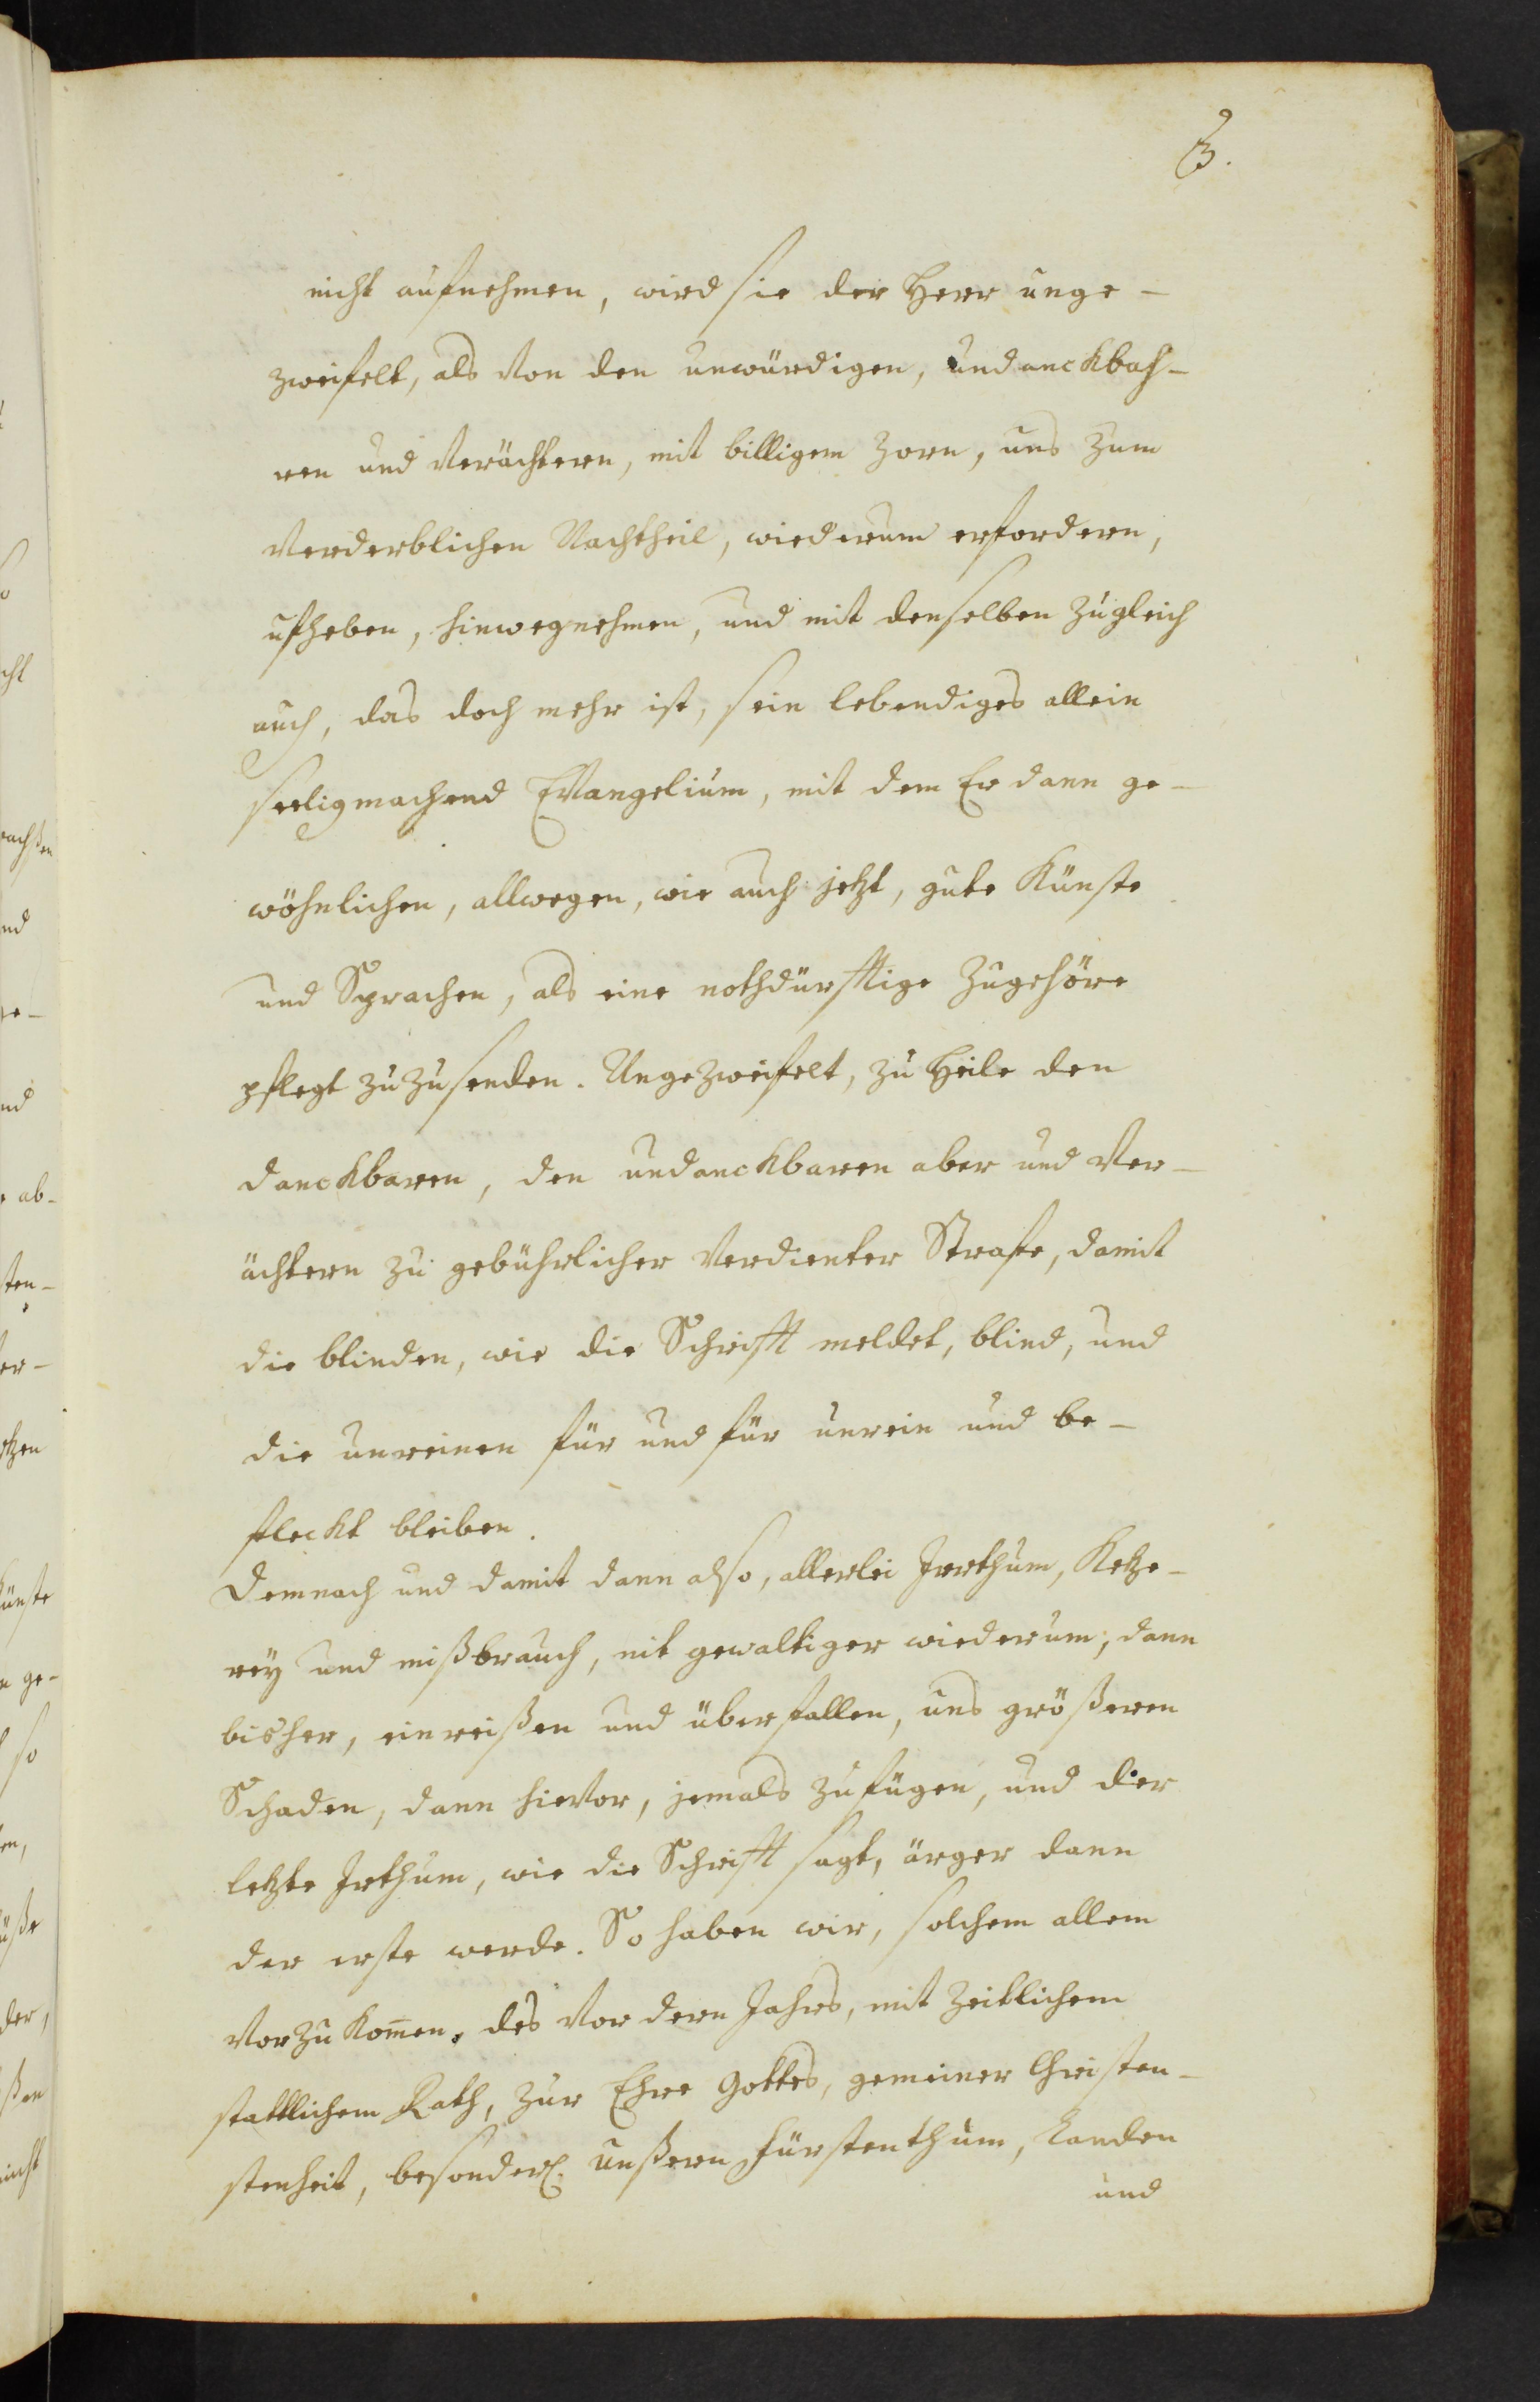 3.
nicht aufnehmen, wird sie der Herr unge-
zweifelt, als von den unwürdigen, undanckbah-
ren und Verächtern, mit billigem Zorn, uns zum
Verderblichen Nachtheil, wiederum erfordern,
ufheben, hinwegnehmen, und mit denselben zugleich
auch, das doch mehr ist, sein lebendiges allein
seeligmachend Evangelium, mit dem Er dann ge-
wöhnlichen, allwegen, wie auch jetzt, gute Künste
und Sprachen, als eine nothdürfftige Zugehöre
pflegt zuzusenden. Ungezweifelt, zu Heile den
danckbaren, den undanckbaren aber und Ver-
ächtern zu gebührlicher Verdienter Strafe, damit
die blinden, wie die Schrifft meldet, blind, und
die unreinen für und für unrein und be-
fleckt bleiben.
Demnach und damit dann also, allerlei Irrthum, Ketze-
rey und mißbrauch, nit gewaltiger wiederum, dann
bisher, einreißen und überfallen, uns größeren
Schaden, dann hievor, jemals zufügen, und der
letzte Irthum, wie die Schrifft sagt, ärger dann
der erste werde. So haben wir, solchem allem
Vorzukom̄en, des Vordern Jahrs, mit zeitlichem
stattlichem Rath, zur Ehre Gottes, gemeiner Christen-
stenheit, besonders unßern Fürstenthum, Landen
und